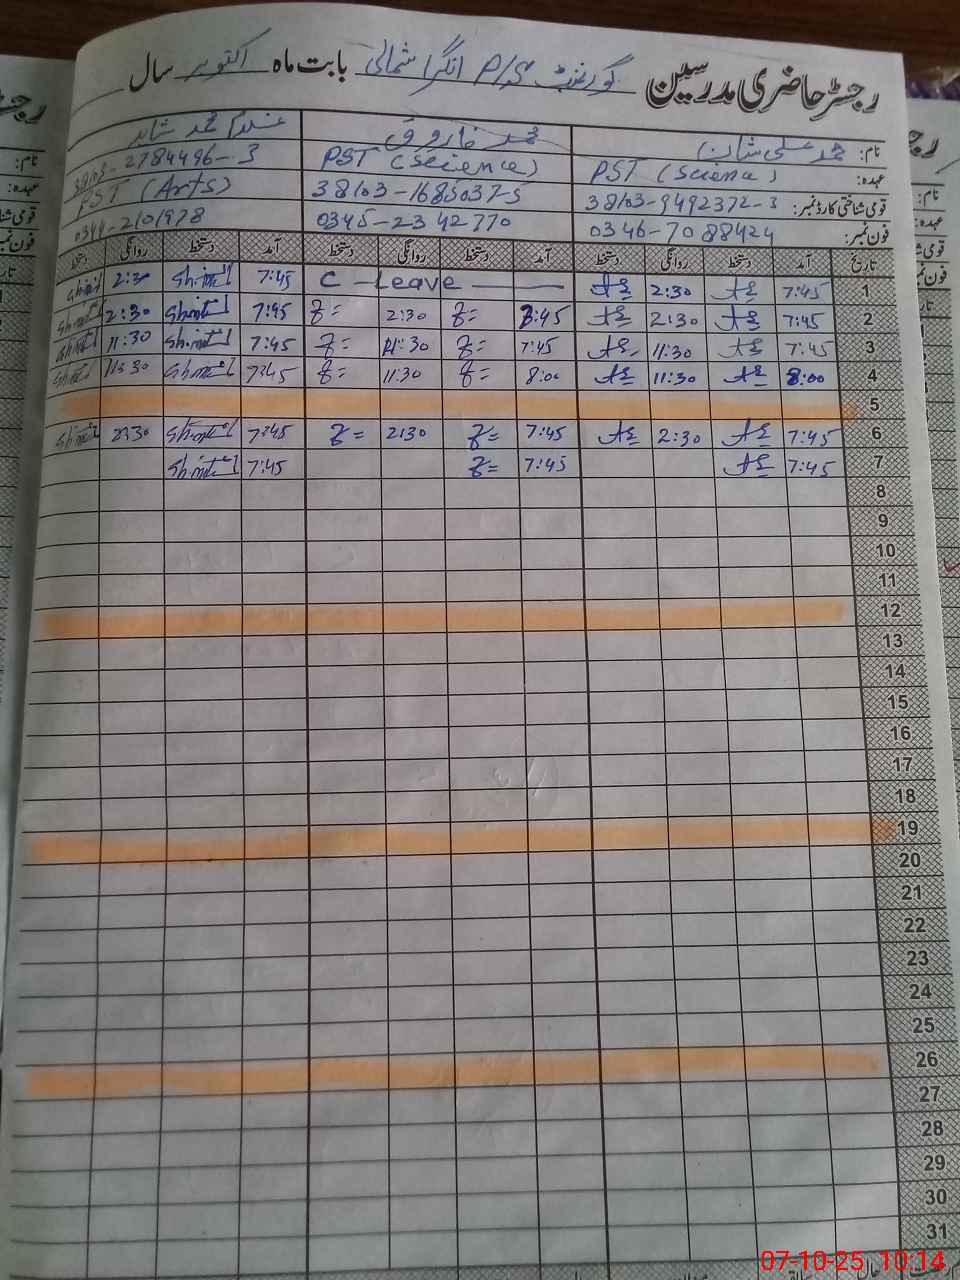 رجسٹر حاضری مدرسین گورنمنٹ P/S انگرا شمالی بابت ماہ اکتوبر سال
نام: محمد علی شان محمد فاروق غلام محمد شاہد
عہدہ: PST (Science) PST (Science) 38103-2784496-3
قومی شناختی کارڈ نمبر: 38103-9492372-3 38103-1685037-5 PST (Arts)
فون نمبر: 0346-7088424 0345-2342770 0344-2101978
تاریخ آمد دستخط روانگی دستخط آمد دستخط روانگی دستخط آمد دستخط روانگی دستخط
1 7:45 2:30 C - Leave 7:45 2:30
2 7:45 2:30 7:45 2:30 7:45 2:30
3 7:45 11:30 7:45 11:30 7:45 11:30
4 8:00 11:30 8:00 11:30 7:45 11:30
5
6 7:45 2:30 7:45 2:30 7:45 2:30
7 7:45 7:45 7:45
8
9
10
11
12
13
14
15
16
17
18
19
20
21
22
23
24
25
26
27
28
29
30
31
07-10-25 10:14